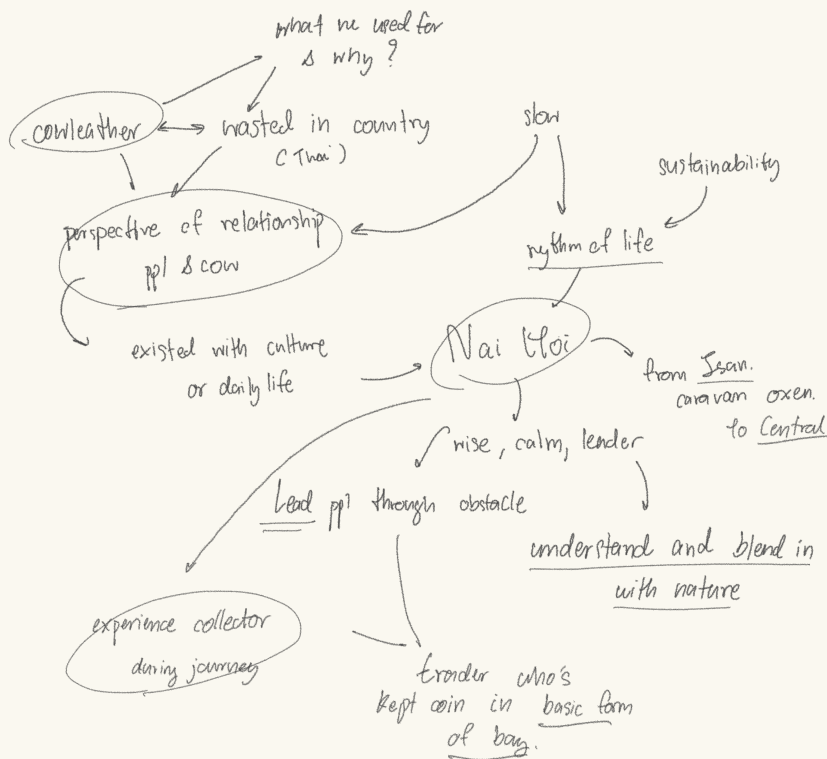 what we used for
& why ?
cowleather
wasted in country
(Thai)
slow
sustainability
perspective of relationship
ppl & cow
rythm of life
existed with culture
or daily life
Nai Hoi
from Isan.
caravan oxen.
to Central
wise, calm, leader
Lead ppl through obstacle
understand and blend in
with nature
experience collector
during journey
trader who's
kept coin in basic form
of bag.